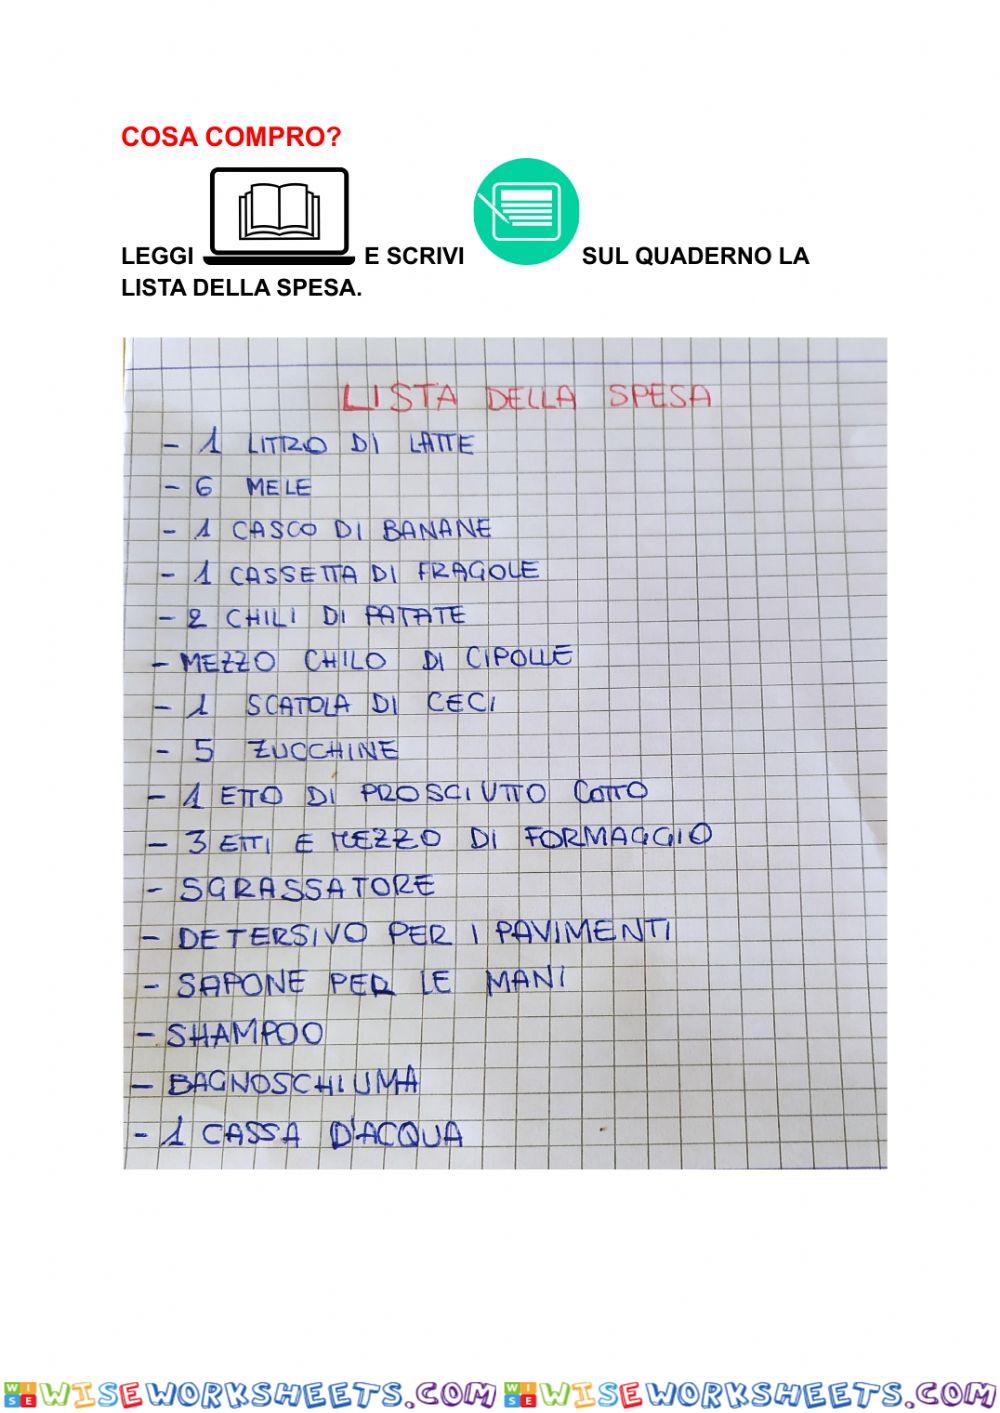 COSA COMPRO?
LEGGI E SCRIVI SUL QUADERNO LA
LISTA DELLA SPESA.
LISTA DELLA SPESA
- 1 LITRO DI LATTE
- 6 MELE
- 1 CASCO DI BANANE
- 1 CASSETTA DI FRAGOLE
- 2 CHILI DI PATATE
- MEZZO CHILO DI CIPOLLE
- 1 SCATOLA DI CECI
- 5 ZUCCHINE
- 1 ETTO DI PROSCIUTTO COTTO
- 3 ETTI E MEZZO DI FORMAGGIO
- SGRASSATORE
- DETERSIVO PER I PAVIMENTI
- SAPONE PER LE MANI
- SHAMPOO
- BAGNOSCHIUMA
- 1 CASSA D'ACQUA
WISE WISEWORKSHEETS.COM WISE WISEWORKSHEETS.COM